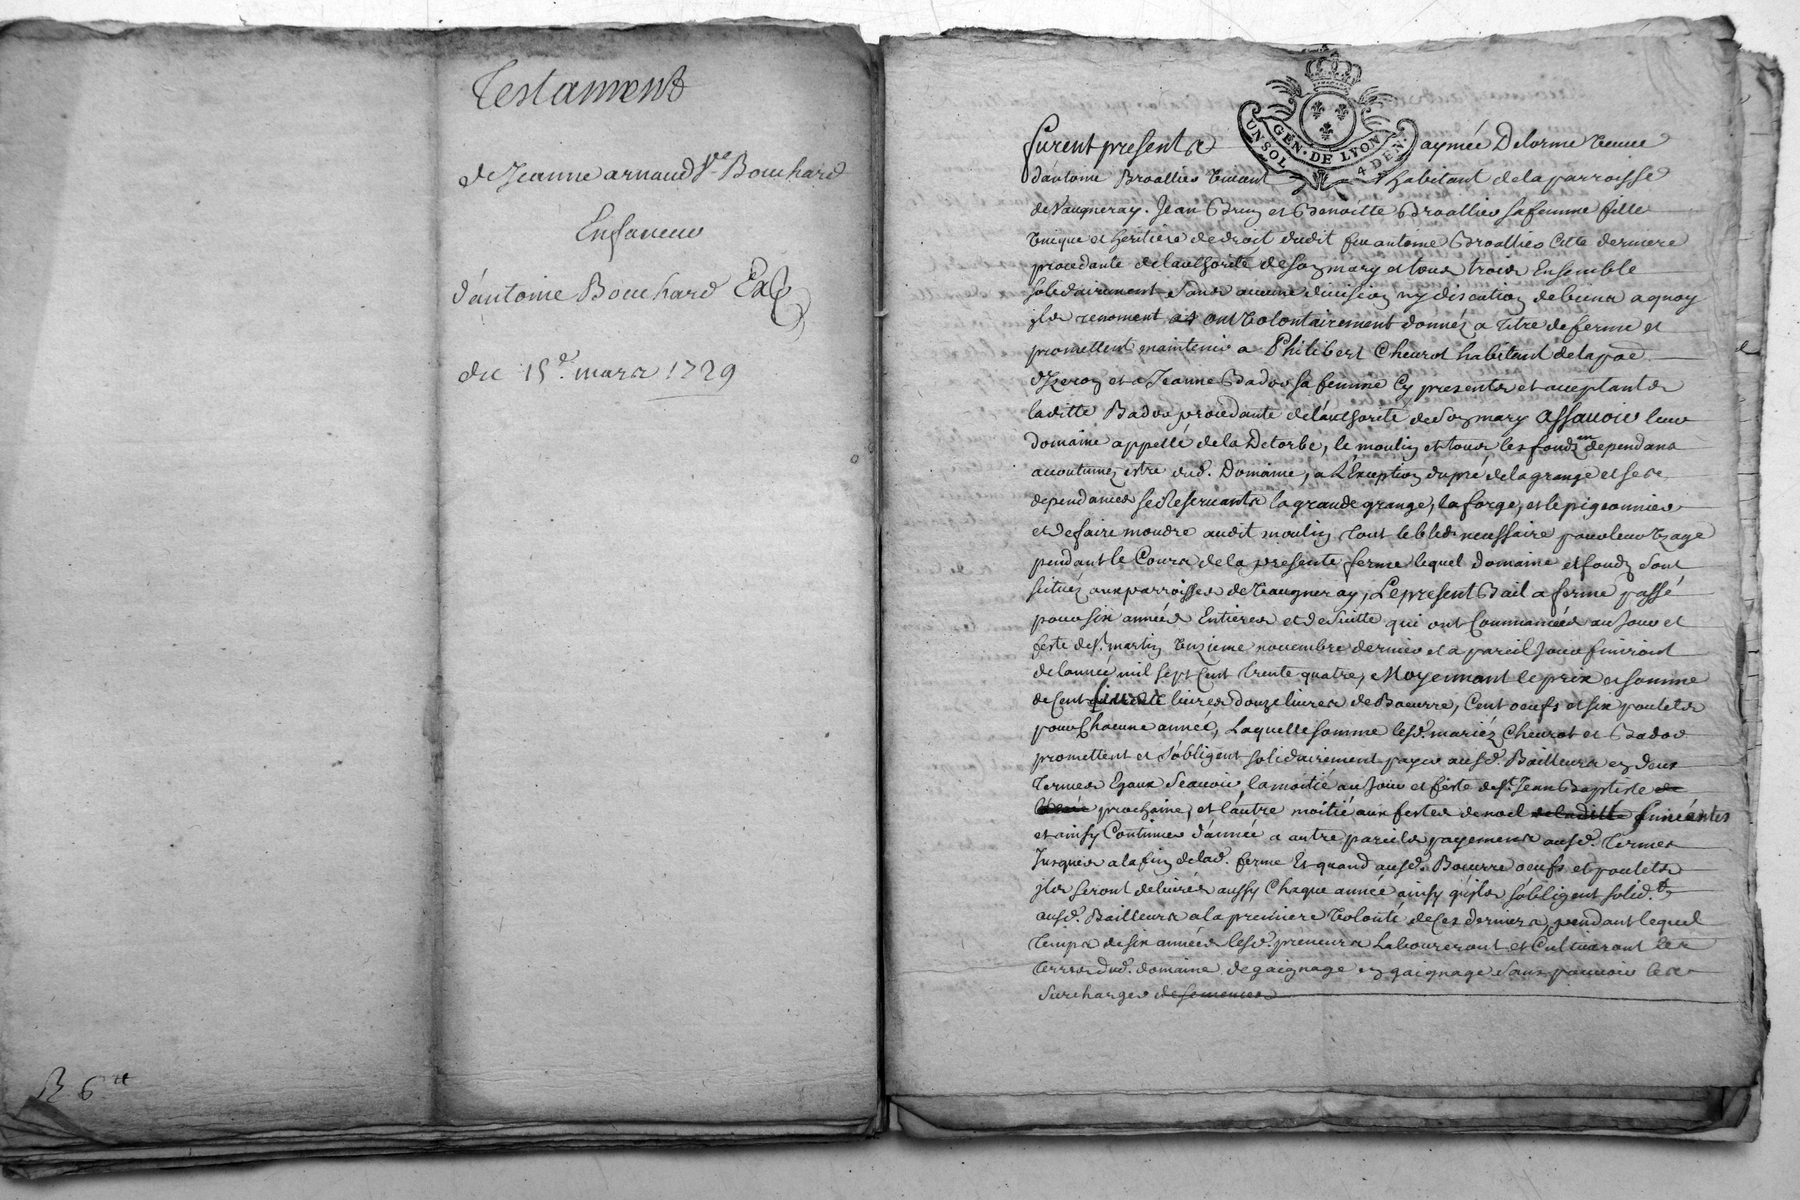 Testament
de Jeanne arnaud Ve Bouchard
Enfaveur
d'antoine Bouchard Exp
du 15e. mars 1729
R 6 tt
UN SOL GEN. DE LYON 4 DEN.
furent presents aymée Delorme veuve
d'antoine Broallier vivant habitant de la parroisse
de Vaugneray. Jean Brun et Benoitte Broallier sa femme fille
Unique et heritiere de droit dudit feu antoine Broallier cette derniere
procedante de l'authorité de son mary et tous trois Ensemble
solidairement sans aucune division ny discution de biens a quoy
ils renoncent ont volontairement donnéz a titre de ferme et
promettent maintenir a Philibert Cheurot habitant de la poe
d'Izeron et a Jeanne Bador sa femme Cy presents et acceptants
laditte Bador procedante de l'authorité de son mary assavoir leur
domaine appellé de la Detorbe, le moulin et tous les fonds en dependans
accoutumez estre dud. Domaine, a L'Exception du pré de la grange et ses
dependances se Reservants la grande grange, la forge, et le pigeonnier
et de faire moudre audit moulin tout le bled necessaire pour leur Uzage
pendant le Cours de la presente ferme lequel domaine et fondz sont
scituéz aux parroisses de Vaugneray, Le present Bail a ferme passé
pour six années Entieres et de suitte qui ont Commancées au Jour et
feste de St. martin Unzieme novembre dernier et a pareil Jour finiront
de l'année mil sept Cent trente quatre, Moyennant le prix et somme
de Cent livres douze livres de Baeurre, Cent oeufs et six poulets
pour Chacune année, Laquelle somme lesd. mariéz Cheurot et Bador
promettent et s'obligent solidairement payer ausd. Bailleurs en deux
termes Egaux Scavoir la moitié au Jour et feste de St. Jean Baptiste de
prochaine, et l'autre moitié aux festes de noel de laditte
et ainsy Continuer d'année a autre pareils payements ausd. termes
Jusques a la fin de lad. ferme Et quand ausd. Boeurre oeufs et poulets
ils seront delivrés aussy Chaque année ainsy qu'ils s'obligent solid.t
ausd. Bailleurs a la premiere volonté de Ces derniers, pendant lequel
temps de six années lesd. preneurs Laboureront et Cultiveront les
terres dud. domaine de gaignage en gaignage sans pouvoir les
surcharger de semences